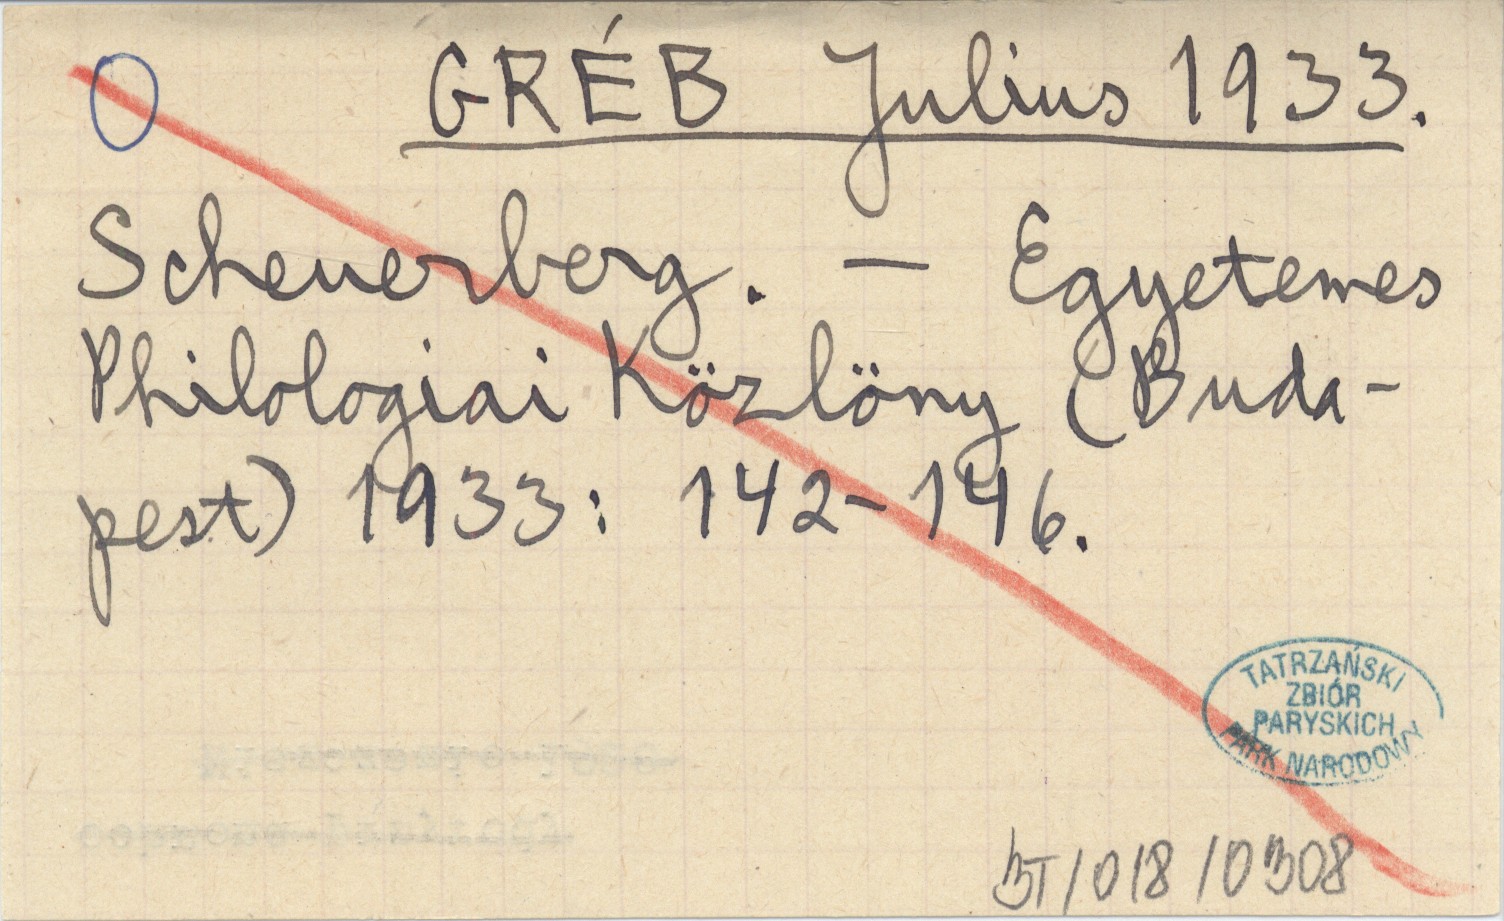 GRÉB Julius 1933.
Scheuerberg. — Egyetemes
Philologiai Közlöny (Buda-
pest) 1933: 142-146.
TATRZAŃSKI
ZBIÓR
PARYSKICH
PARK NARODOWY
BT/018/0308